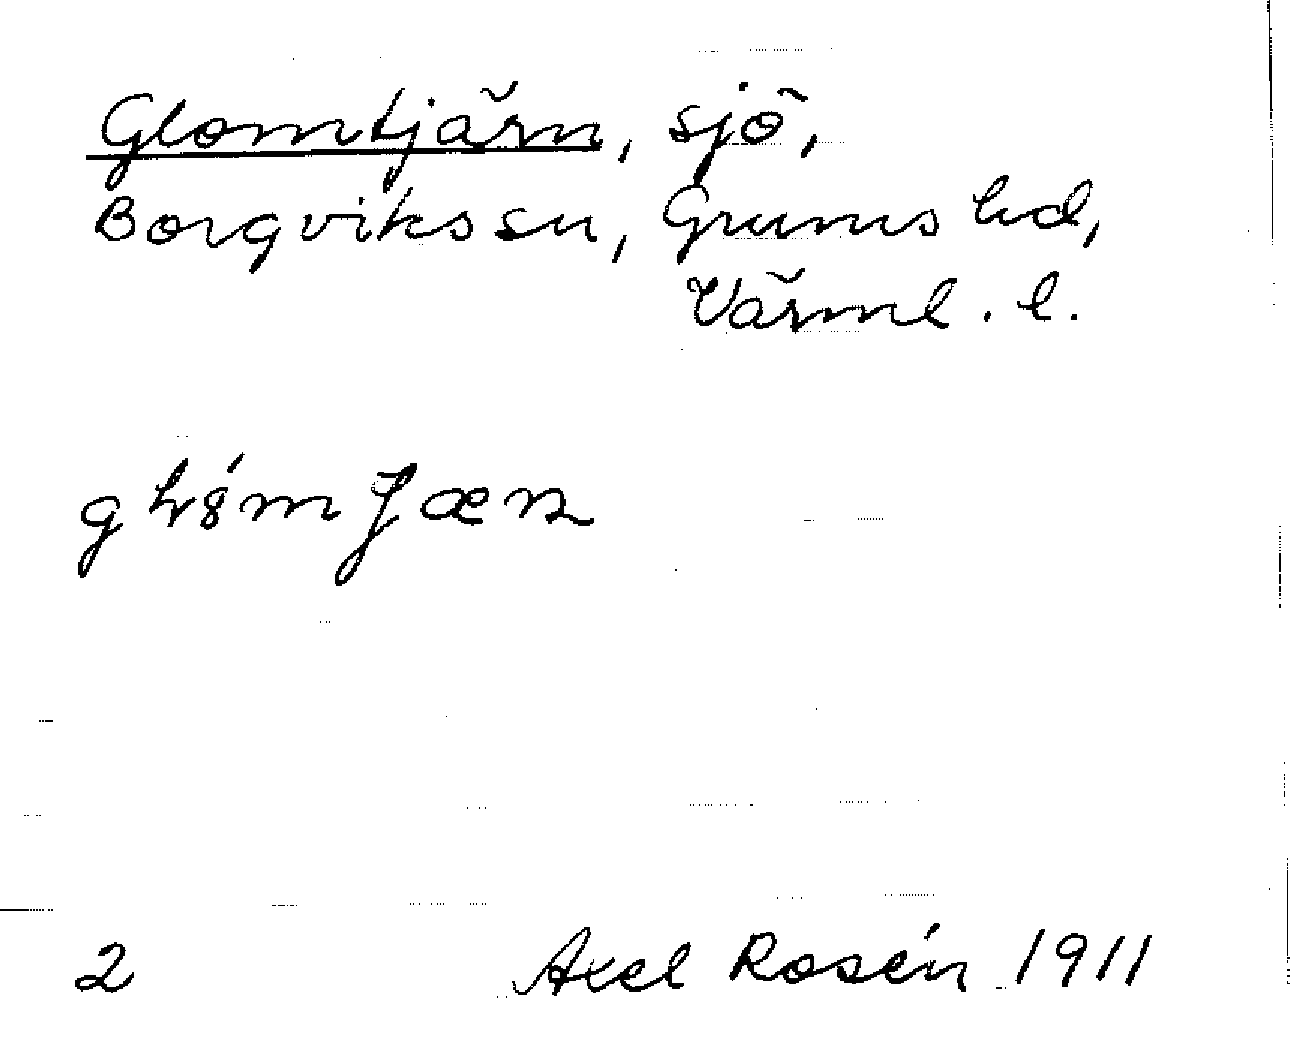 Glomtjärn, sjö,
Borgviks sn, Grums hd,
Värml. l.
2
Axel Rosén 1911